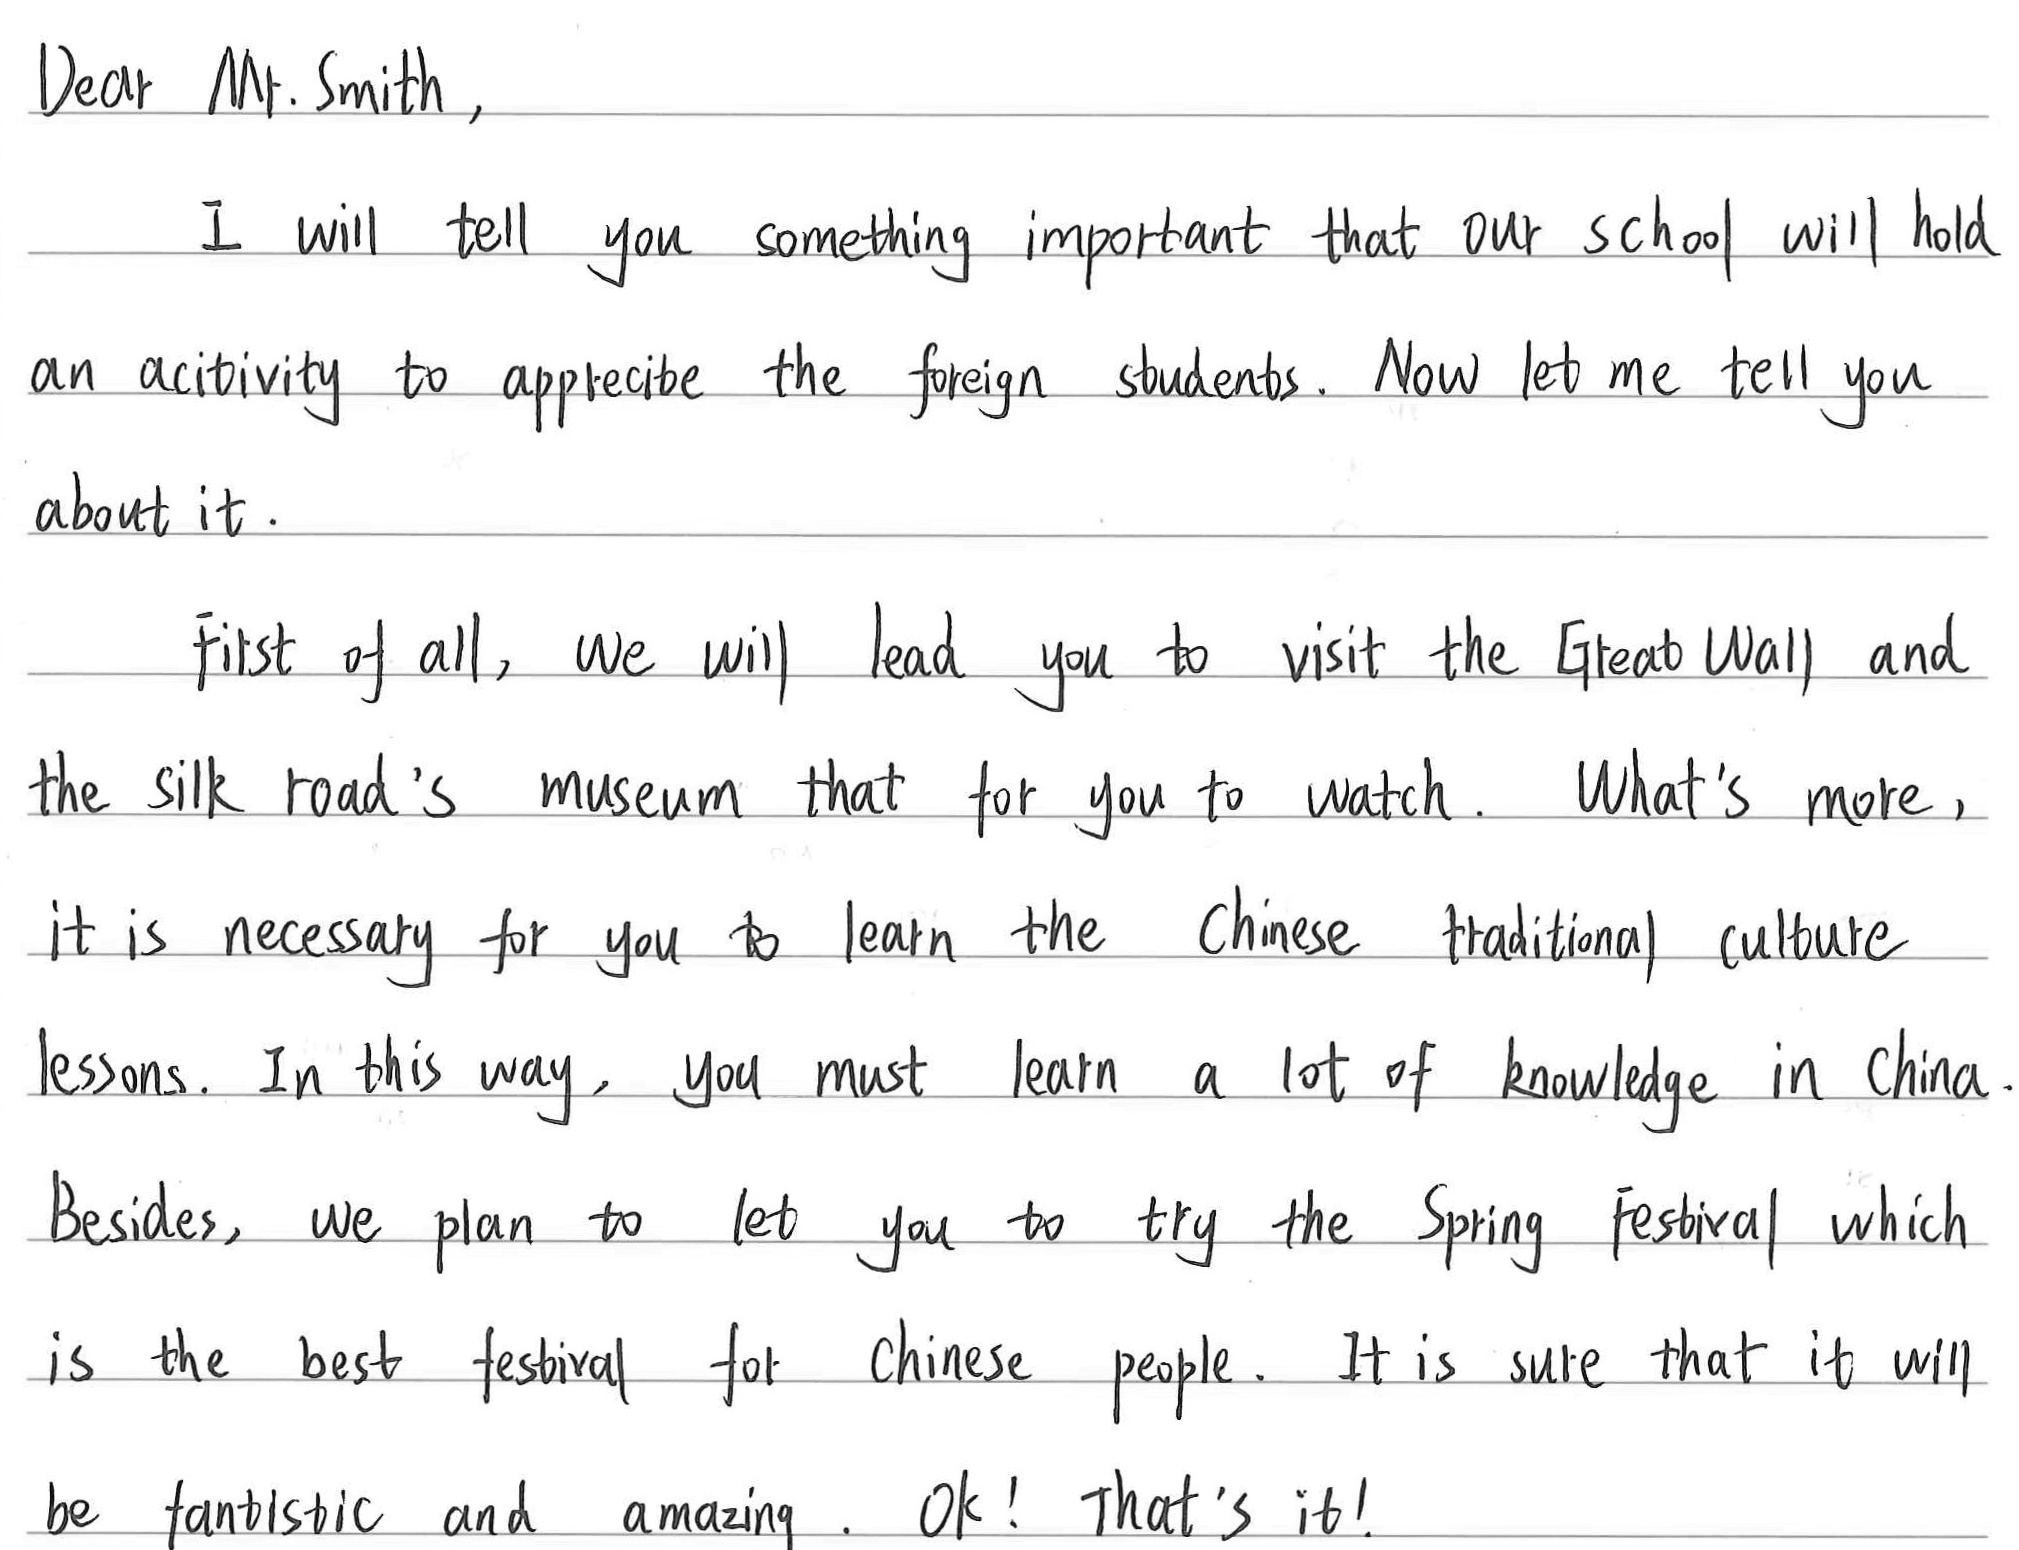 Dear Mr. Smith,
I will tell you something important that our school will hold
an acitivity to apprecite the foreign students. Now let me tell you
about it.
First of all, we will lead you to visit the Great Wall and
the silk road's museum that for you to watch. What's more,
it is necessary for you to learn the Chinese traditional culture
lessons. In this way, you must learn a lot of knowledge in China.
Besides, we plan to let you to try the Spring Festival which
is the best festival for Chinese people. It is sure that it will
be fantistic and amazing. Ok! That's it!